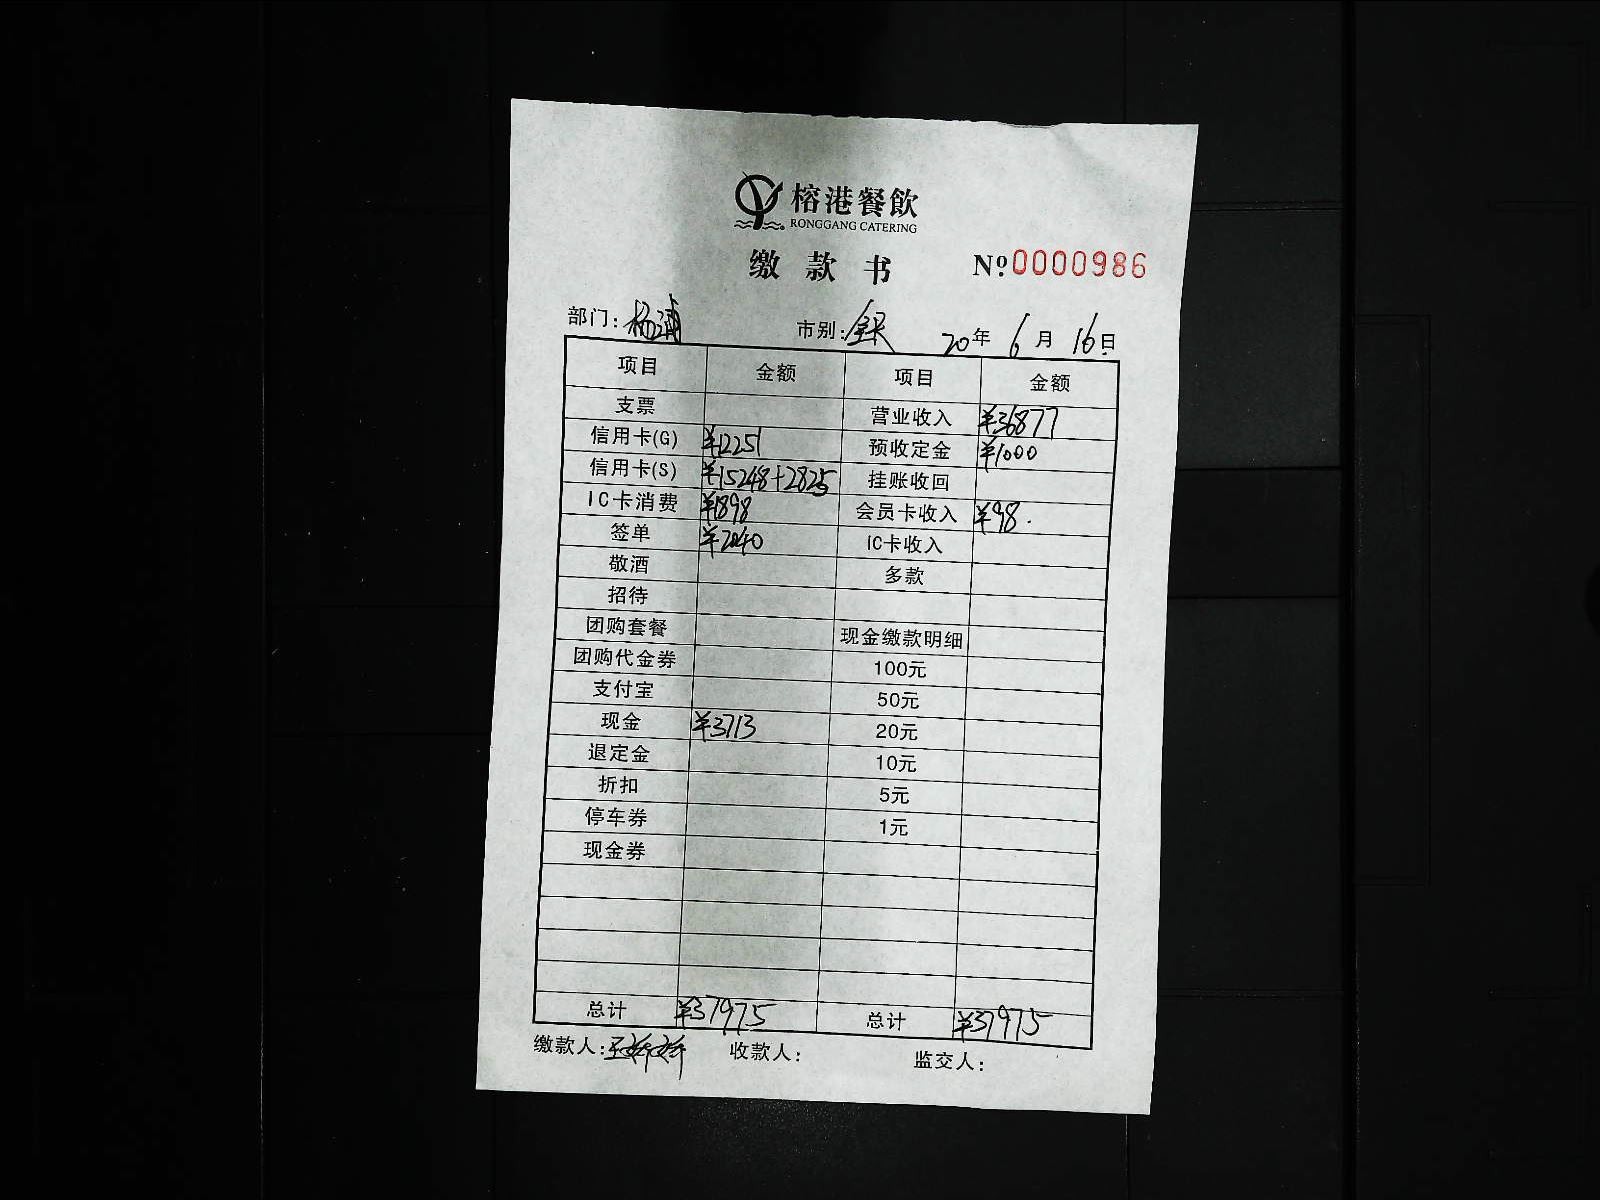 榕港餐飲
RONGGANG CATERING
缴款书 Nº0000986
部门: 杨浦 市别: 全天 20年 6月 16日
项目 金额 项目 金额
支票 营业收入 ¥36877
信用卡(G) ¥12251 预收定金 ¥1000
信用卡(S) ¥15248+2825 挂账收回
IC卡消费 ¥1898 会员卡收入 ¥98.
签单 ¥2040 IC卡收入
敬酒 多款
招待
团购套餐 现金缴款明细
团购代金券 100元
支付宝 50元
现金 ¥3713 20元
退定金 10元
折扣 5元
停车券 1元
现金券
总计 ¥37975 总计 ¥37975
缴款人: 王娇娇 收款人: 监交人: